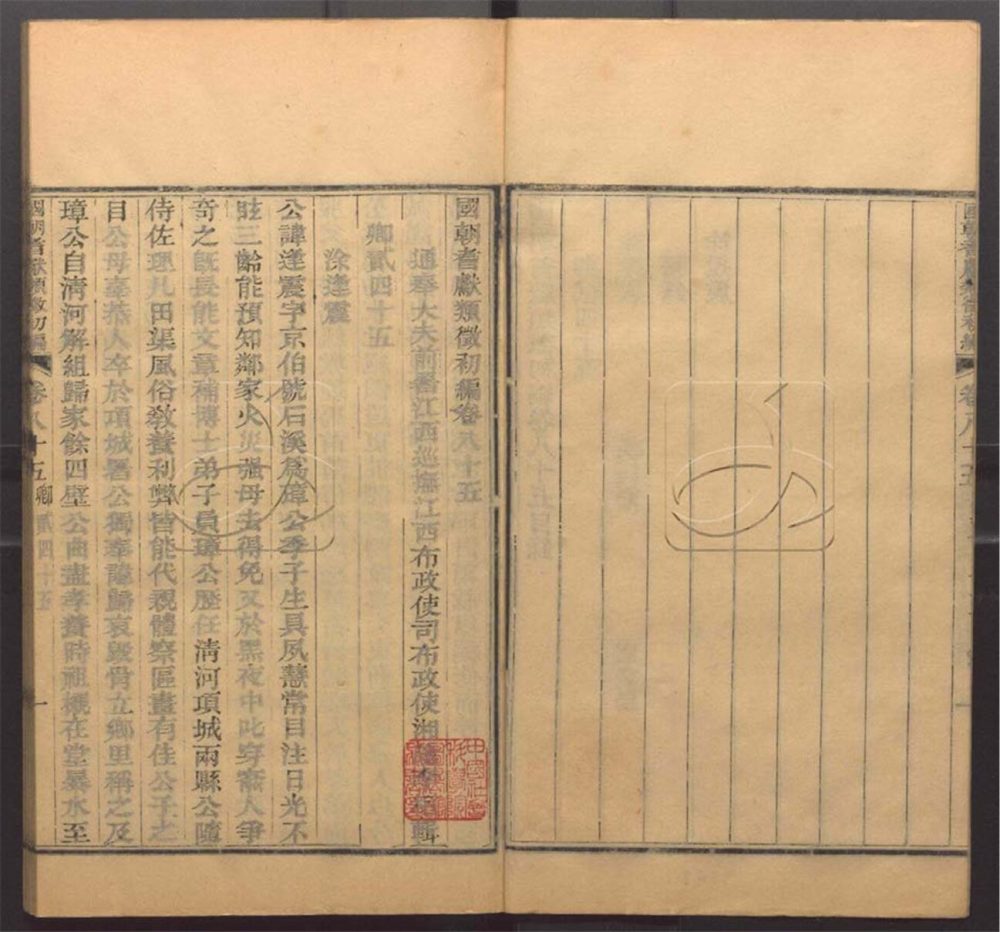 國朝耆獻類徵初編卷八十五
通奉大夫前署江西巡撫江西布政使司布政使湘陰李桓輯
卿貳四十五
涂逢震
公諱逢震字京伯號石溪為璋公季子生具夙慧常目注日光不
眩三齡能預知鄰家火災強母去得免又於黑夜中叱穿窬人爭
奇之旣長能文章補博士弟子員璋公歷任清河項城兩縣公隨
侍佐理凡田渠風俗教養利弊皆能代親體察區畫有佳公子之
目公母辜恭人卒於項城署公獨奉諱歸哀毀骨立鄉里稱之及
璋公自清河解組歸家餘四壁公曲盡孝養時祖櫬在堂暴水至
國朝耆獻類徵初編 卷八十五 卿貳四十五 一